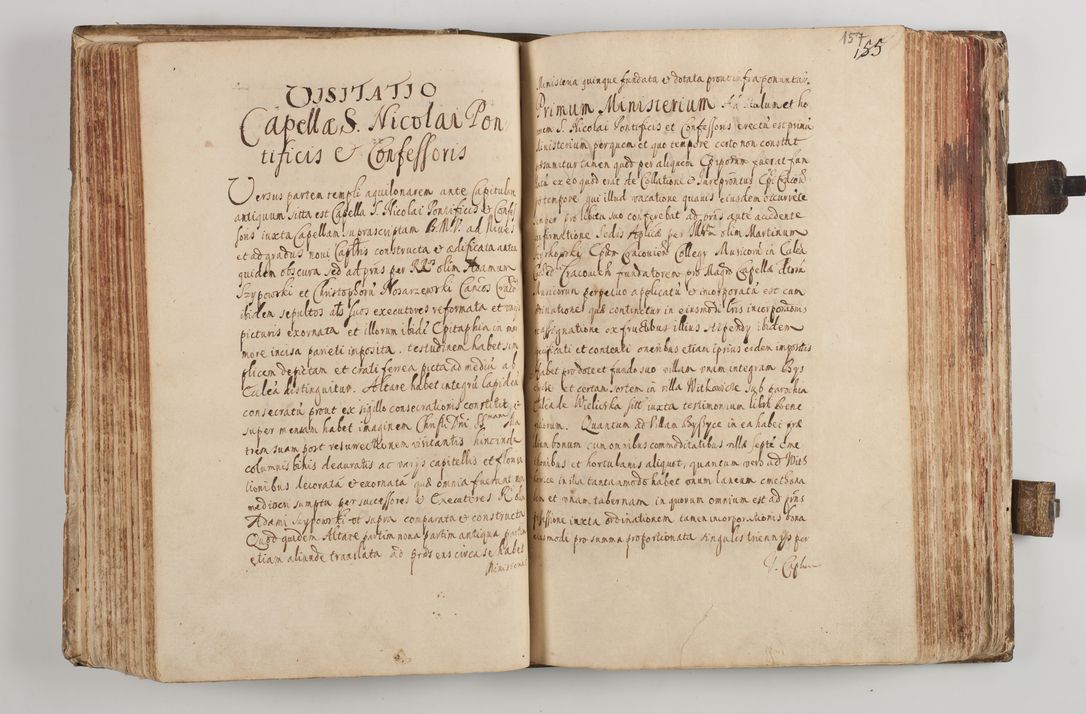 VISITATIO
Capellæ S. Nicolai Pon-
tificis & Confessoris
Versus partem templi aquilonarem ante Capitulum
antiquum sita est Capella S. Nicolai Pontificis & Confes
soris iuxta Capellam suprascriptam B.M.V. ad Nives
et ad gradus novi constructa & ædificata antea
quidem obscura sed ad prns per olim Adamum
Szypowski et Christophorũ Nosarzewski Cancos
ibidem sepultos als suos executores reformata et varijs
picturis exornata et illorum ibidẽ Epitaphia in mar
more incisa parieti inposita. testudinem habet sim
plicem depictam et crati ferrea picta ad mediũ ab
distinguitur. Altare habet integrũ lapideũ
consecratũ prout ex sigillo consecrationis constitit, &
super mensam habet imaginem Christi Dni
trem suam post resurectionem visitantis hinc inde
columnis binis deauratis ac varijs capitellis et
tionibus decorata & exornata quæ omnia fuerunt non
mediocri sumptu per successores & Executores
Adami Szypowski ut supra comparata & constructa
Quod quidem Altare partim nova partim antiqua partim
etiam aliunde translata ad prns ens circa se habet
Ministeria
157
155
Ministeria quinque fundata & dotata prout infra ponuntur.
Primum Ministerium Ad titulum et ho
rem S. Nicolai Pontificis et Confessoris erectũ est primũ
Ministerium per quem et quo tempore certo non constat
tamen quod per aliquem fuerat fun
ex eo quod erat de Collatione &
tempore qui illud vacatione quavis eiusdem occurrẽte
semper pro libitu suo conferebat ad prns autẽ accidente
Sedis per olim Martinum
Collegy Musicorũ in
fundatorem pro Capella
Musicorum perpetuo applicatũ & incorporatũ est cum
ordinatione quæ continetur in eiusmodi
assignatione ex fructibus illius stipendy ibidem
et contenti oneribus etiam ipsius eidem impositis
habet pro dote et fundo suo villam unam integram Bys
et certam sortem in villa Witkowice sub parochia
de Wieliczka iuxta testimonium libri Bene
ficiorum. Quantum ad Villam Byszyce in ea habet præ
bonum cum omnibus commoditatibus villæ septẽ Cme
tonibus et hortulanis aliquot, quantum vero ad Wit
kowice in illa tantumodo habet unum laneum cmethona
lem et unam tabernam in quorum omnium est ad prns
possessione iuxta ordinationem tamen incorporationis bona
eiusmodi pro summa proportionata singulis trienniis per